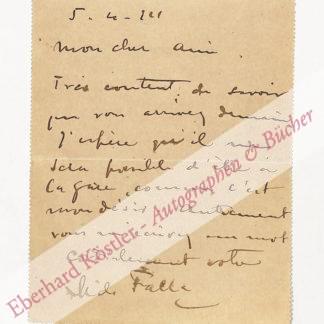 5-4-
mon cher ami
Très content de savoir
que vous arrivez demain
J'espère qu'il me
sera possible d'être à
la gare, comme c'est
mon désir. Autrement
vous un mot
votre
Falla
Eberhard Köstler - Autographen & Bücher